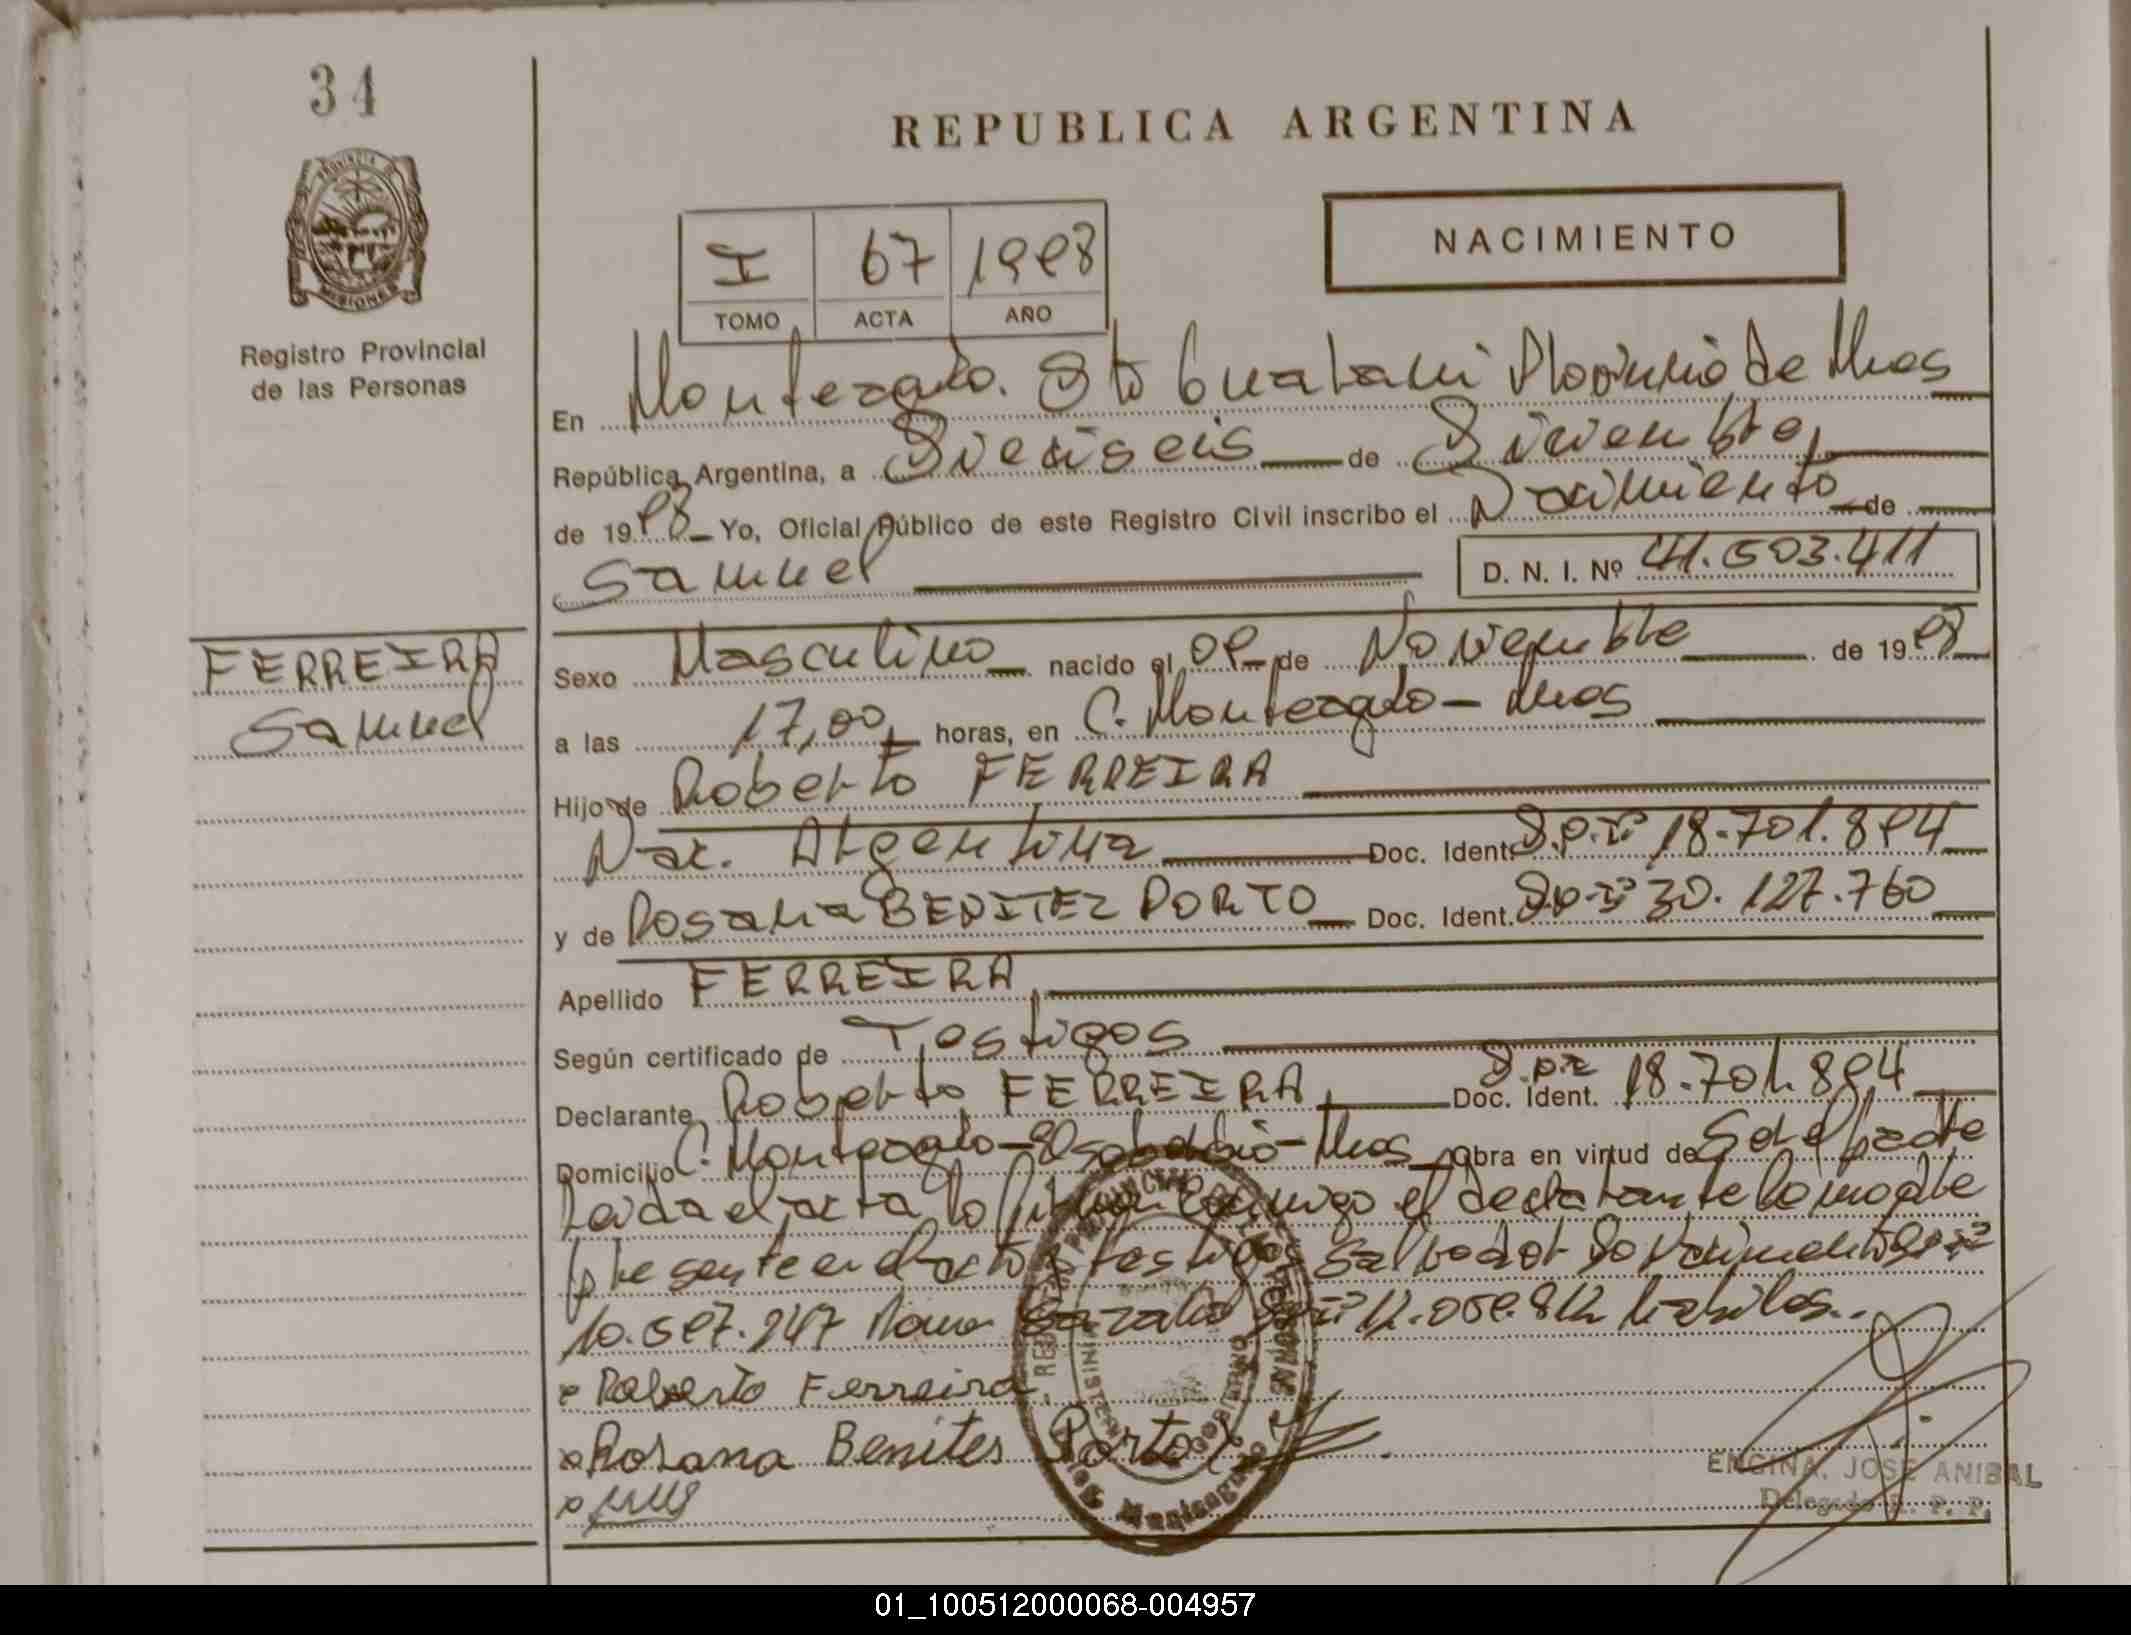 34
REPUBLICA ARGENTINA
PROVINCIA DE
MISIONES
Registro Provincial
de las Personas
I 67 1998
TOMO ACTA AÑO
NACIMIENTO
En Monteagudo. Dto Guarani Provincia de Mnes
República Argentina, a Dieciseis de Diciembre,
de 1998 Yo, Oficial Público de este Registro Civil inscribo el Nacimiento de
Samuel D. N. I. Nº 41.503.411
FERREIRA
Samuel
Sexo Masculino nacido el 09 de Noviembre de 1998
a las 17,00 horas, en C. Monteagudo - Mnes
Hijo de Roberto FERREIRA
Nac. Argentina Doc. Ident. D.N.I 18.701.894
y de Rosana BENITEZ PORTO Doc. Ident. D.N.I 30.127.760
Apellido FERREIRA
Según certificado de Testigos
Declarante Roberto FERREIRA Doc. Ident. D.N.I 18.701.894
Domicilio C. Monteagudo - El Soberbio - Mnes obra en virtud de Ser el padre
Leida el acta lo firman conmigo el declarante la madre
presente en el acto y testigos Salvador Do Nacimento
habiles.
x Roberto Ferreira
x Rosana Benites Porto
ENCINA, JOSE ANIBAL
Delegado R. P. P.
01_100512000068-004957